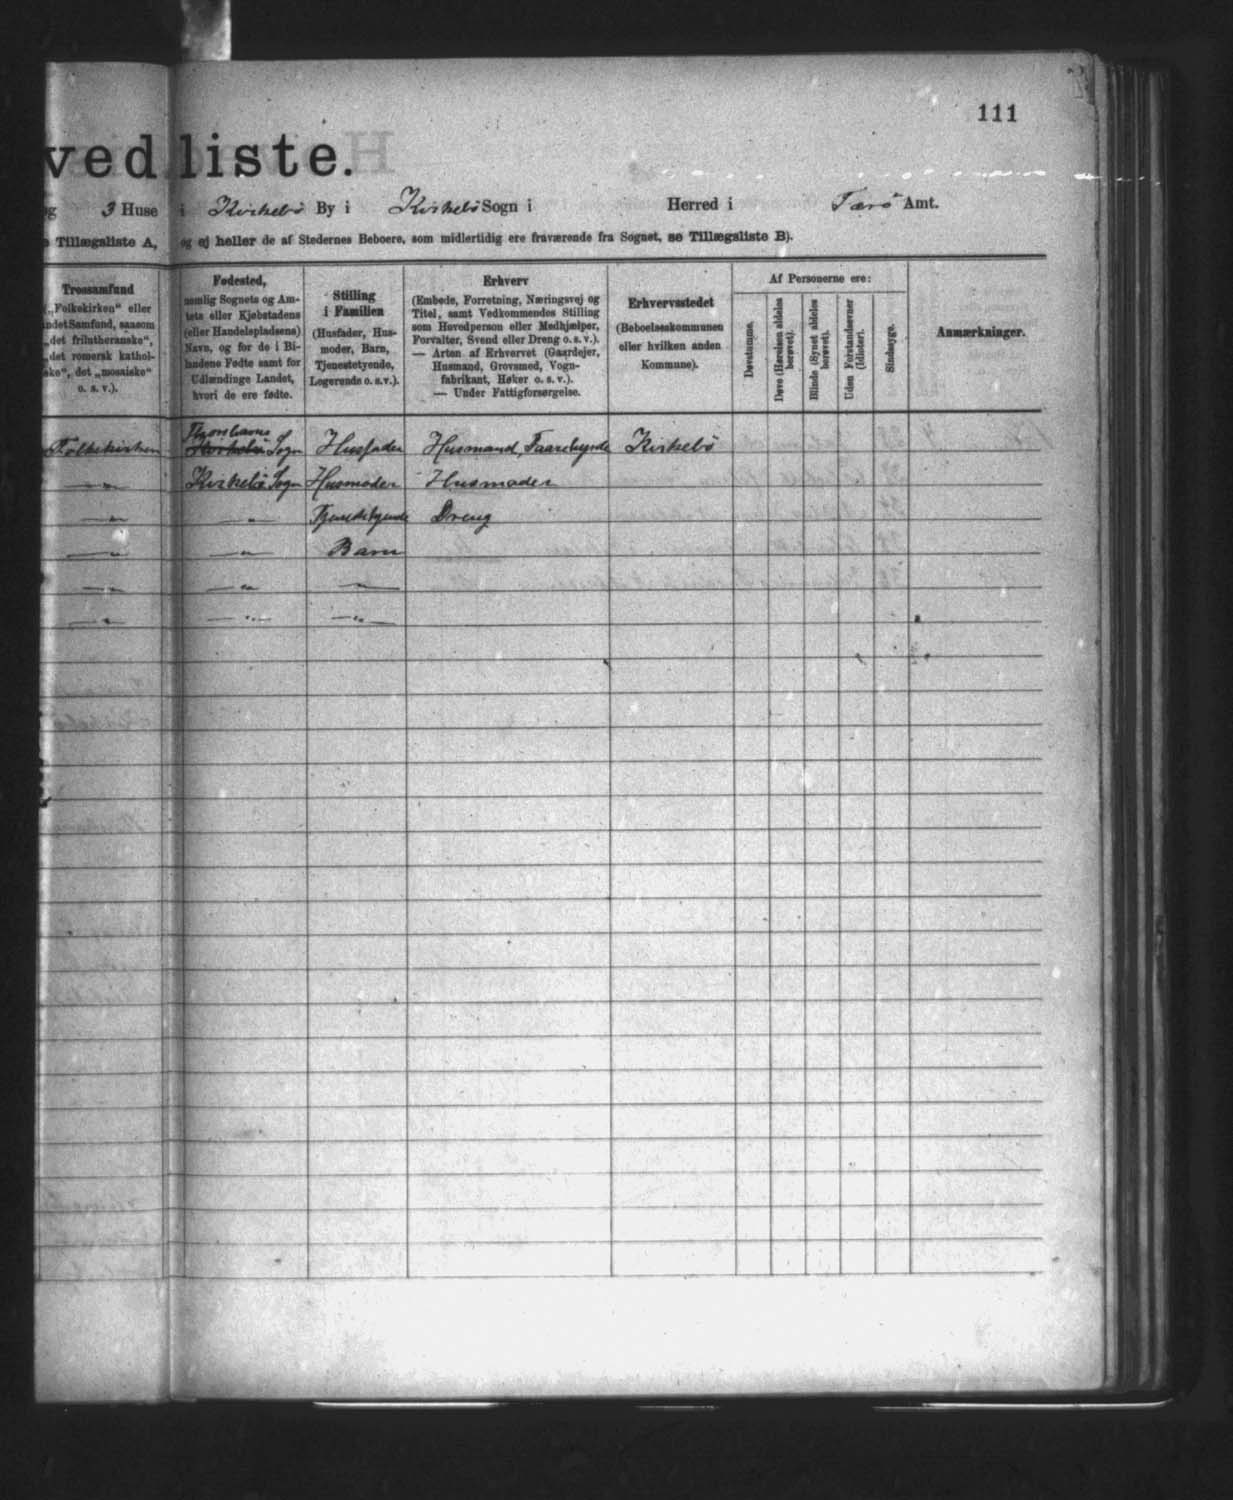 111
ved liste.
og 3 Huse i Kirkebø By i Kirkebø Sogn i Herred i Færø Amt.
Tillægsliste A, og ej heller de af Stedernes Beboere, som midlertidig ere fraværende fra Sognet, se Tillægsliste B).
Trossamfund
(„Folkekirken“ eller
andet Samfund, saasom
„det frilutheranske“,
„det romersk kathol-
ske“, det „mosaiske“
o. s. v.).
Fødested,
nemlig Sognets og Am-
tets eller Kjøbstadens
(eller Handelspladsens)
Navn, og for de i Bi-
landene Fødte samt for
Udlændinge Landet,
hvori de ere fødte.
Stilling
i Familien
(Husfader, Hus-
moder, Barn,
Tjenestetyende,
Logerende o. s. v.).
Erhverv
(Embede, Forretning, Næringsvej og
Titel, samt Vedkommendes Stilling
som Hovedperson eller Medhjælper,
Forvalter, Svend eller Dreng o. s. v.).
— Arten af Erhvervet (Gaardejer,
Husmand, Grovsmed, Vogn-
fabrikant, Høker o. s. v.).
— Under Fattigforsørgelse.
Erhvervsstedet
(Beboelseskommunen
eller hvilken anden
Kommune).
Af Personerne ere:
Døvstumme.
Døve (Hørelsen aldeles
berøvet).
Blinde (Synet aldeles
berøvet).
Uden Forstandsevner
(Idioter).
Sindssyge.
Anmærkninger.
Thorshavns
Folkekirken Kirkebø Sogn Husfader Husmand, Kirkebø
—〃— Kirkebø Sogn Husmoder Husmoder
—〃— —〃— Tjenestetyende Dreng
—〃— —〃— Barn
—〃— —〃— —〃—
—〃— —〃— —〃—